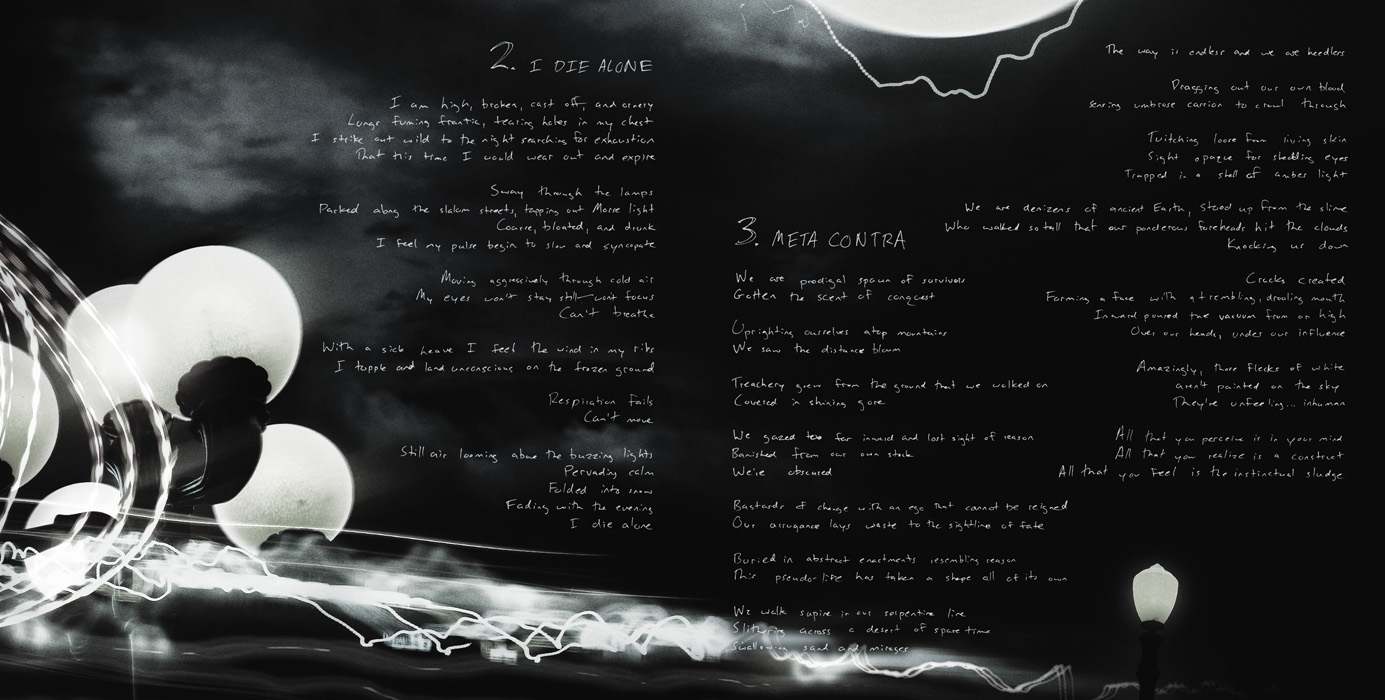 2. I DIE ALONE
I am high, broken, cast off, and ornery
Lungs fuming frantic, tearing holes in my chest
I strike out wild to the night searching for exhaustion
That this time I would wear out and expire
Sway through the lamps
Parked along the slalom streets, tapping out Morse light
Coarse, bloated, and drunk
I feel my pulse begin to slow and syncopate
Moving aggressively through cold air
My eyes won't stay still—wont focus
Can't breathe
With a sick heave I feel the wind in my ribs
I topple and land unconscious on the frozen ground
Respiration fails
Can't move
Still air looming above the buzzing lights
Pervading calm
Folded into snow
Fading with the evening
I die alone
3. META CONTRA
We are prodigal spawn of survivors
Gotten the scent of conquest
Uprighting ourselves atop mountains
We saw the distance bloom
Treachery grew from the ground that we walked on
Covered in shining gore
We gazed too far inward and lost sight of reason
Banished from our own stock
We're obscured
Bastards of change with an ego that cannot be reigned
Our arrogance lays waste to the sightline of fate
Buried in abstract enactments resembling reason
This pseudo-life has taken a shape all of its own
We walk supine in our serpentine line
Slithering across a desert of sparetime
Swallowing sand and mirages
The way is endless and we are heedless
Dragging out our own blood
Sensing umbrose carrion to crawl through
Twitching loose from living skin
Sight opaque for shedding eyes
Trapped in a shell of amber light
We are denizens of ancient Earth, stood up from the slime
Who walked so tall that our ponderous foreheads hit the clouds
Knocking us down
Cracks created
Forming a face with a trembling, drooling mouth
Inward poured the vacuum from on high
Over our heads, under our influence
Amazingly, those flecks of white
aren't painted on the sky
They're unfeeling... inhuman
All that you perceive is in your mind
All that you realize is a construct
All that you feel is the instinctual sludge